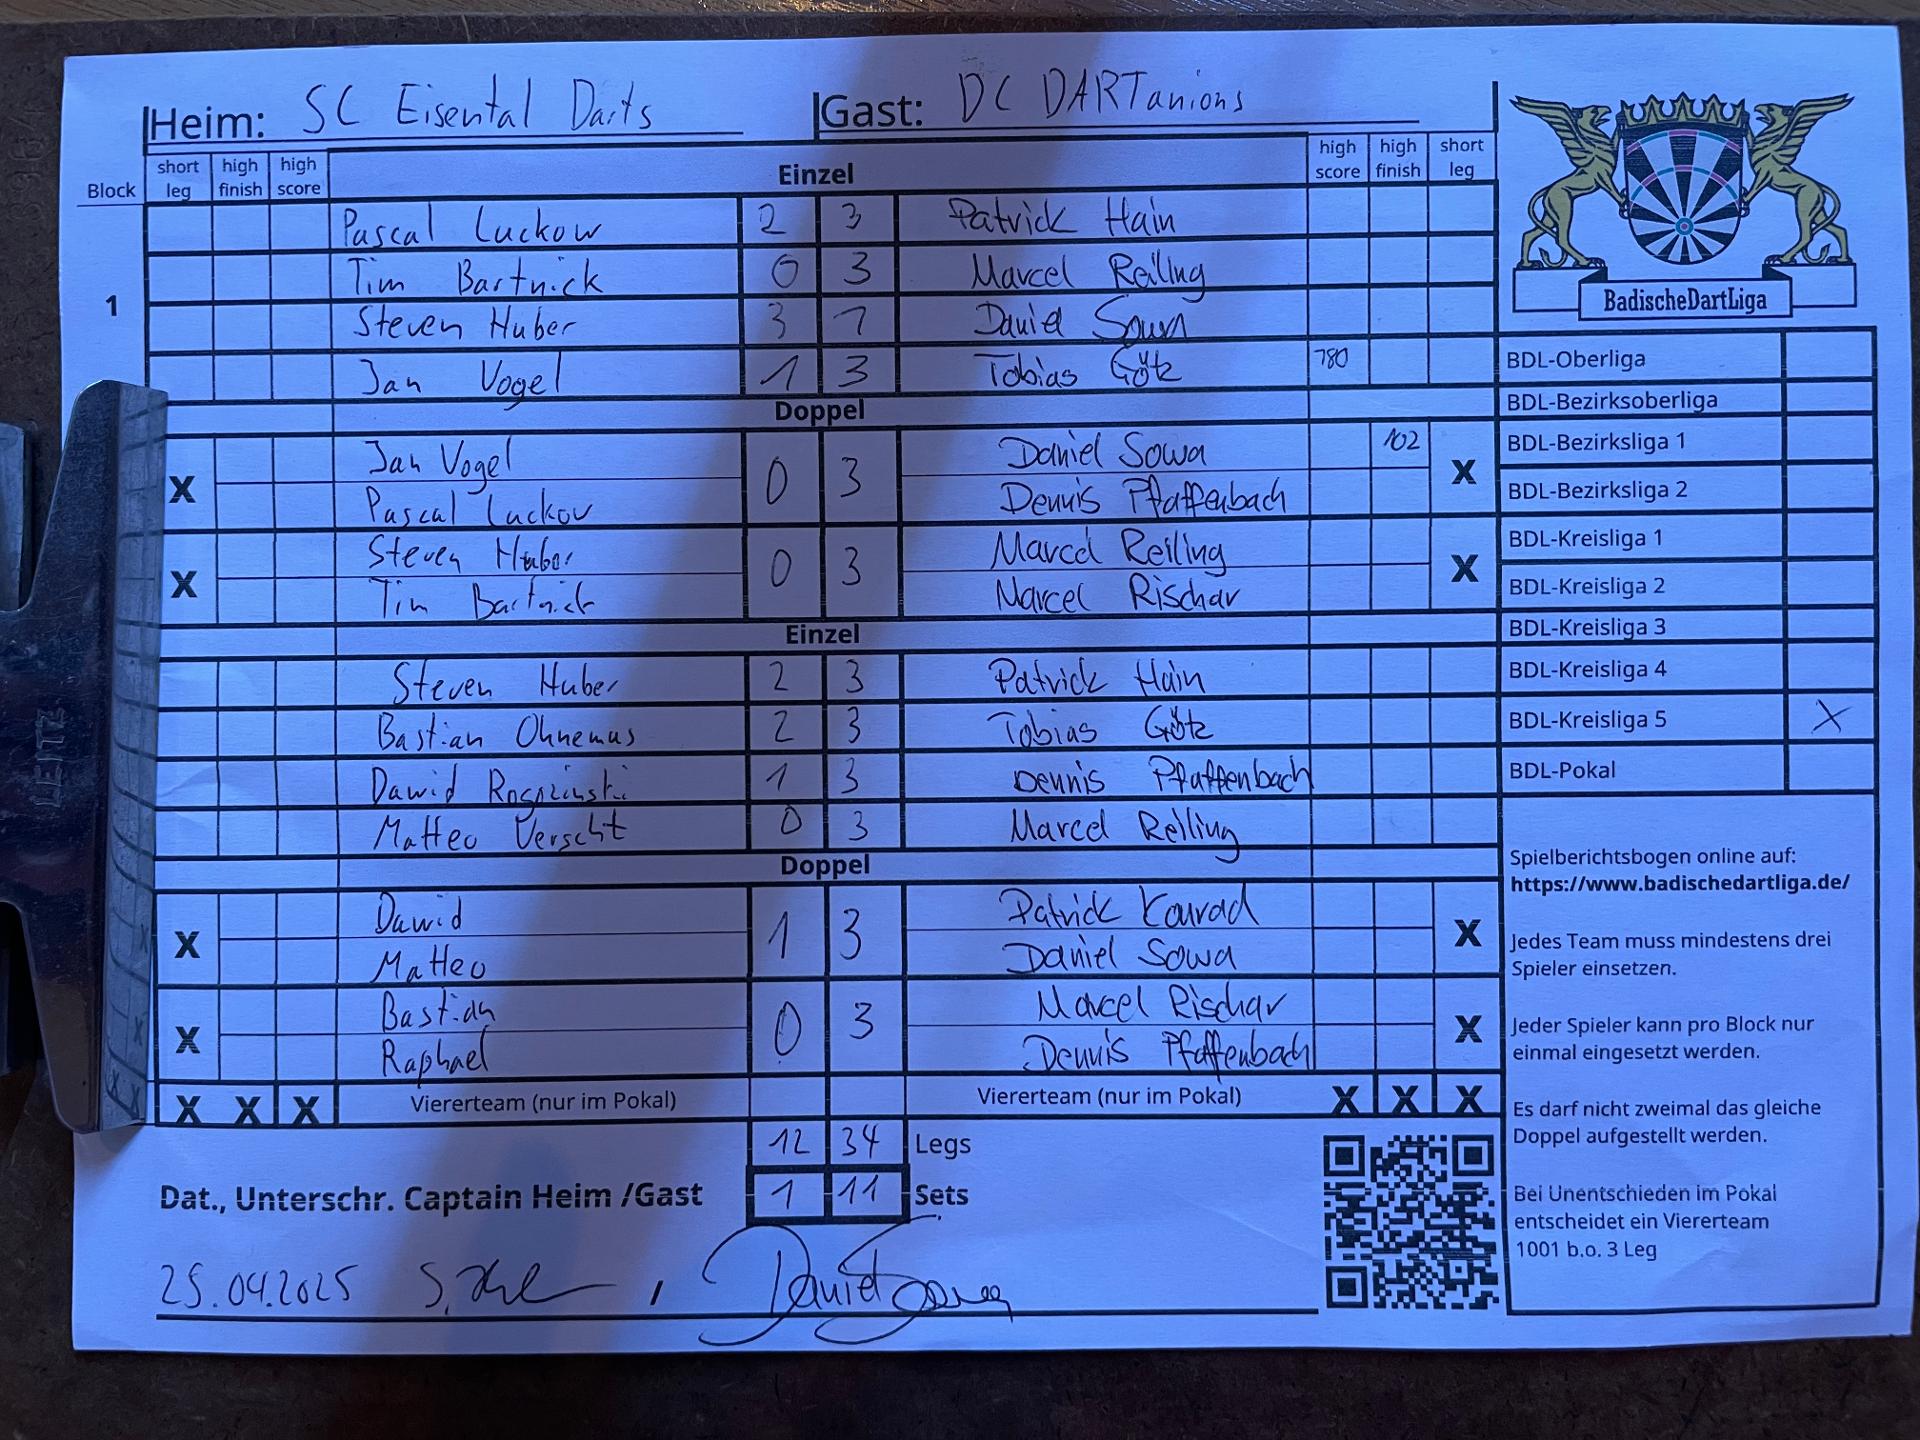 Heim: SC Eisental Darts Gast: DC DARTanions
Block short leg high finish high score Einzel high score high finish short leg
1
Pascal Luckow 2 3 Patrick Hain
Tim Bartnick 0 3 Marcel Reiling
Steven Huber 3 1 Daniel Sowa
Jan Vogel 1 3 Tobias Götz 180
Doppel
Jan Vogel Daniel Sowa 102
X 0 3 X
Pascal Luckow Dennis Pfaffenbach
Steven Huber Marcel Reiling
X 0 3 X
Tim Bartnick Marcel Rischar
Einzel
Steven Huber 2 3 Patrick Hain
Bastian Ohnemus 2 3 Tobias Götz
Dawid 1 3 Dennis Pfaffenbach
Matteo 0 3 Marcel Reiling
Doppel
Dawid Patrick Konrad
X 1 3 X
Matteo Daniel Sowa
Bastian Marcel Rischar
X 0 3 X
Raphael Dennis Pfaffenbach
X X X Viererteam (nur im Pokal) Viererteam (nur im Pokal) X X X
12 34 Legs
Dat., Unterschr. Captain Heim /Gast 1 11 Sets
25.04.2025 , Daniel Sowa
BadischeDartLiga
BDL-Oberliga
BDL-Bezirksoberliga
BDL-Bezirksliga 1
BDL-Bezirksliga 2
BDL-Kreisliga 1
BDL-Kreisliga 2
BDL-Kreisliga 3
BDL-Kreisliga 4
BDL-Kreisliga 5 X
BDL-Pokal
Spielberichtsbogen online auf:
https://www.badischedartliga.de/
Jedes Team muss mindestens drei
Spieler einsetzen.
Jeder Spieler kann pro Block nur
einmal eingesetzt werden.
Es darf nicht zweimal das gleiche
Doppel aufgestellt werden.
Bei Unentschieden im Pokal
entscheidet ein Viererteam
1001 b.o. 3 Leg
LEITZ